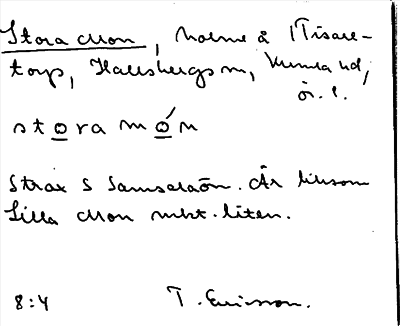 Stora Mon, holme å Tisaren-
torp, Hallsbergs sn, Kumla hd,
ör. l.
stora món
Strax S Samsalaön. Är liksom
Lilla Mon mkt. liten.
8:4 T. Ericsson.